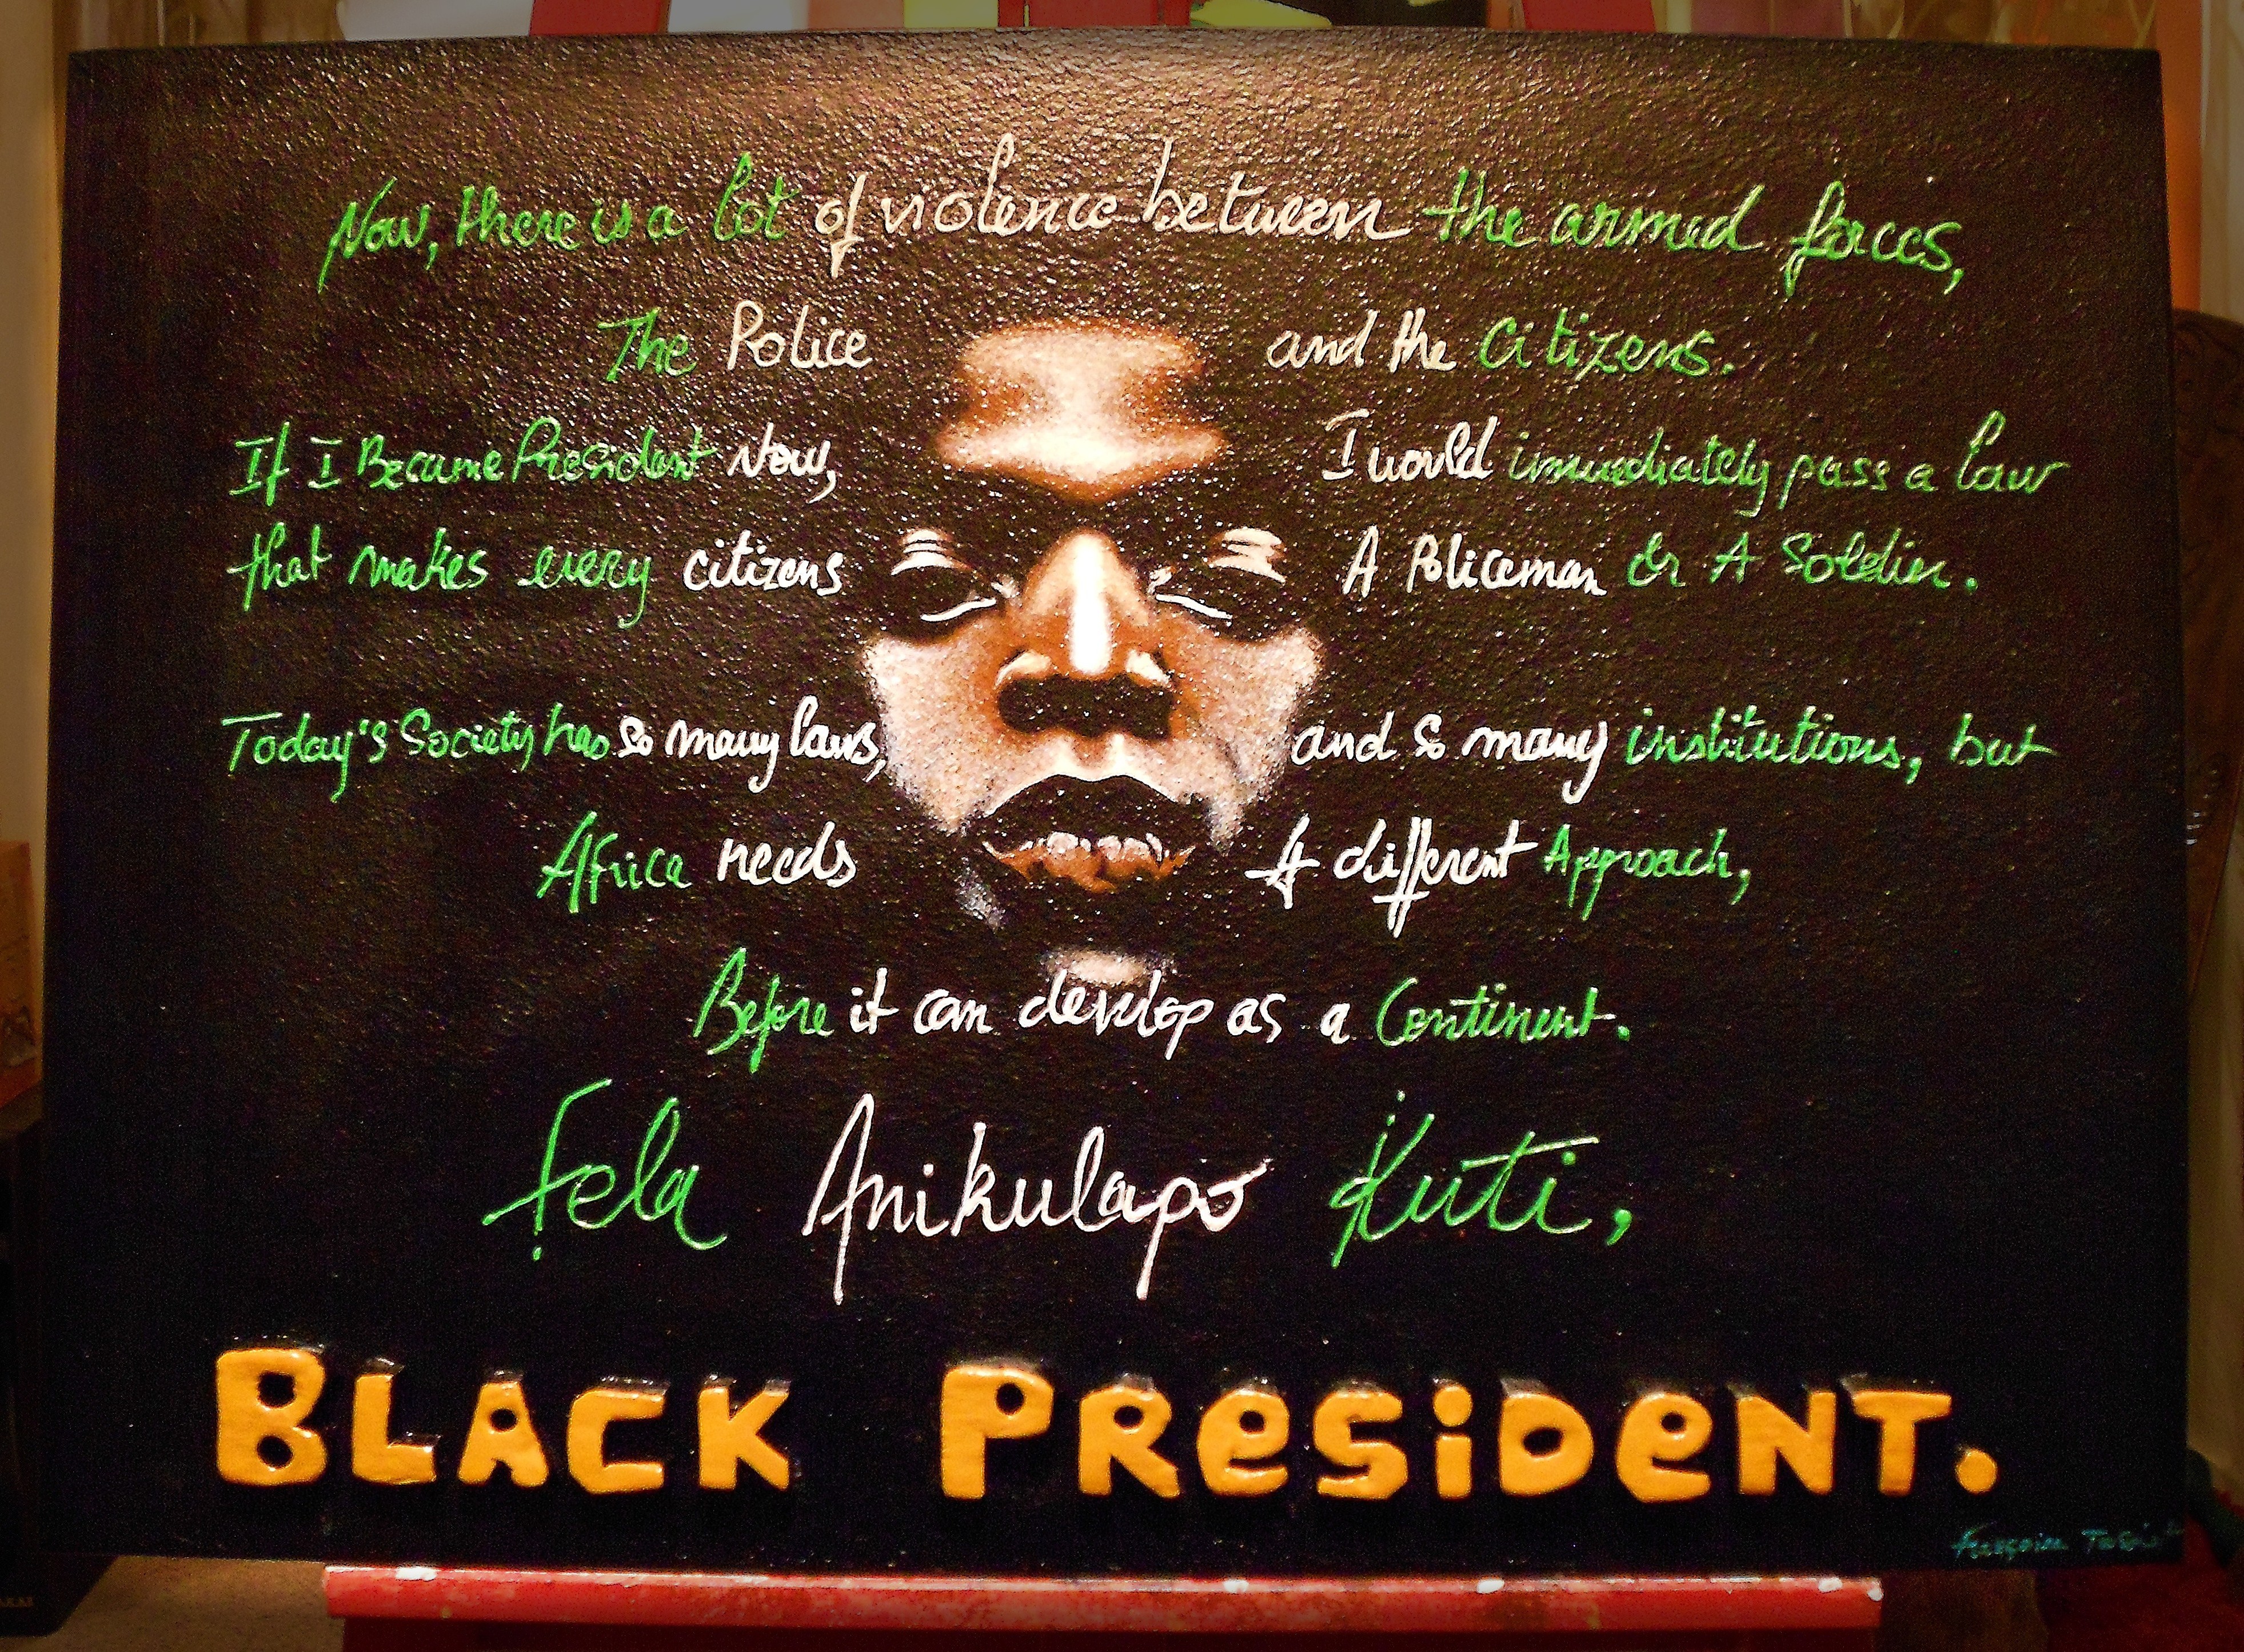 Now, there is a lot of violence between the armed forces,
The Police and the Citizens.
If I Became President Now, I would immediately pass a law
that makes every citizens A Policeman Or A Soldier.
Today's Society has so many laws, and so many institutions, but
Africa needs A different Approach,
Before it can develop as a Continent.
Fela Anikulapo Kuti,
BLACK PReSiDeNT.